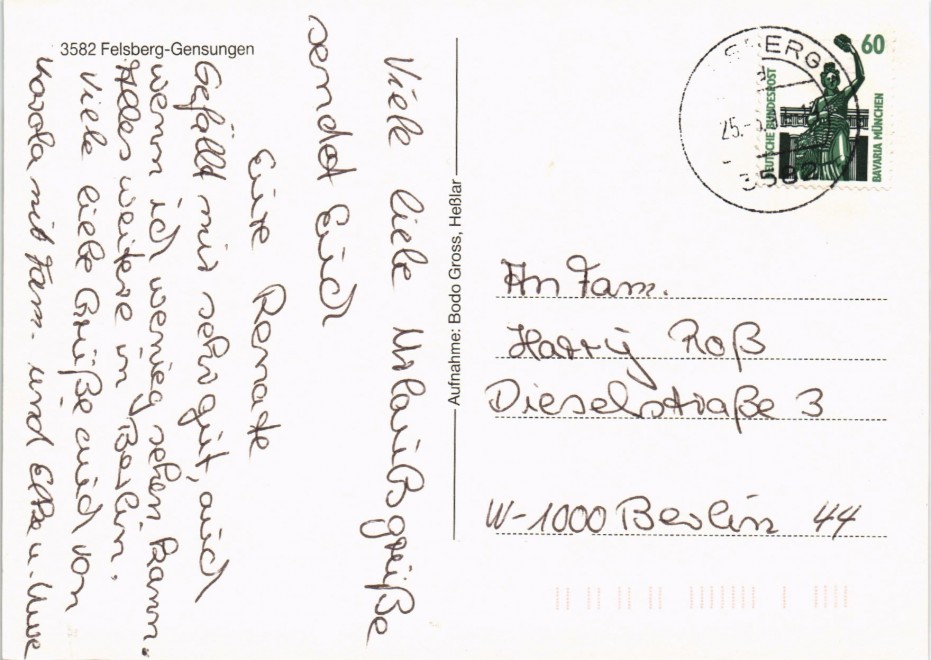 3582 Felsberg-Gensungen
Viele liebe Urlaubsgrüße
sendet Euch
Eure Renate
Gefällt mir sehr gut, auch
wenn ich wenig sehen kann.
Alles weitere in Berlin.
Viele liebe Grüße auch von
mit Fam. und Elke u. Uwe
Aufnahme: Bodo Gross, Heßlar
60
DEUTSCHE BUNDESPOST
BAVARIA MÜNCHEN
25.
3582
An Fam.
Harry Roß
Dieselstraße 3
W-1000 Berlin 44